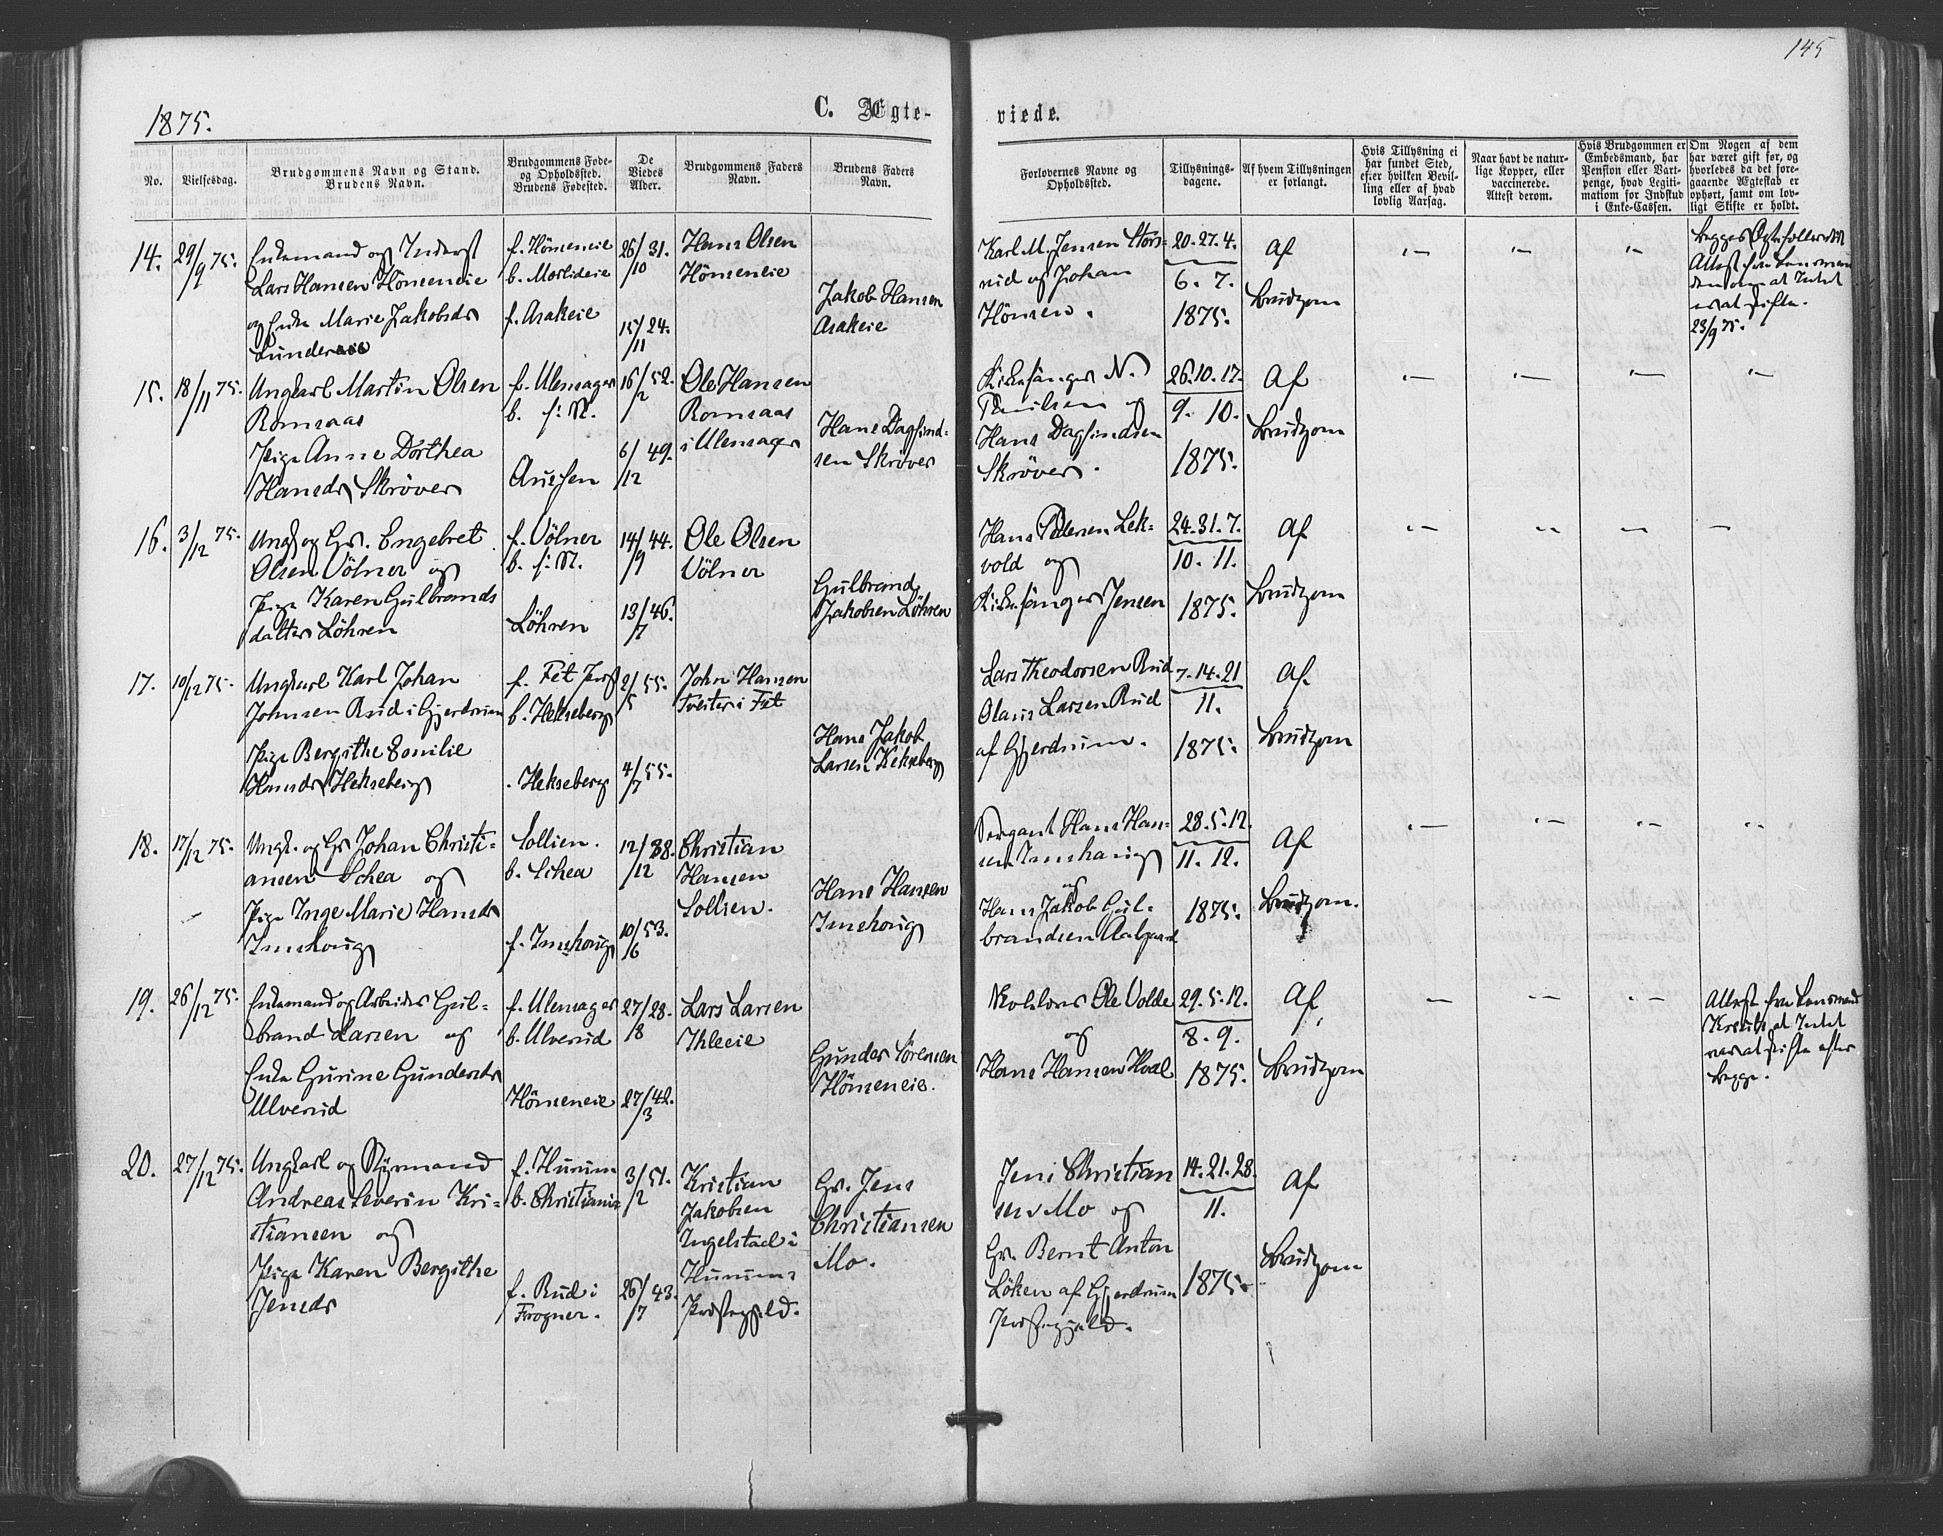 145
1875.
C. Ægte-
viede.
No.
Vielsesdag.
Brudgommens Navn og Stand.
Brudens Navn.
Brudgommens Føde-
og Opholdssted.
Brudens Fødested.
De
Viedes
Alder.
Brudgommens Faders
Navn.
Brudens Faders
Navn.
Forlovernes Navne og
Opholdssted.
Tillysnings-
dagene.
Af hvem Tillysningen
er forlangt.
Hvis Tillysning ei
har fundet Sted,
efter hvilken Bevil-
ling eller af hvad
lovlig Aarsag.
Naar havt de natur-
lige Kopper, eller
vaccinerede.
Attest derom.
Hvis Brudgommen er
Embedsmand, har
Pension eller Vart-
penge, hvad Legiti-
mation for Indskud
i Enke-Cassen.
Om Nogen af dem
har været gift før, og
hvorledes da det fore-
gaaende Ægteskab er
ophørt, samt om lov-
ligt Skifte er holdt.
14.
29/9 75.
Enkemand og Inderst
Lars Hansen Hömeneie
og Enke Marie Jakobsdr
Lundereie
f. Hömeneie
b. Morlideie
f. Asakeie
26/10 31.
15/11 24.
Hans Olsen
Hömeneie
Jakob Hansen
Asakeie
Karl M. Jensen Hors-
rud og Johan
Hömen.
20. 27. 4.
6. 7.
1875.
Af
Brudgom
Attest fra Lensman
den om at Intet
er at skifte.
23/9 75.
15.
18/11 75.
Ungkarl Martin Olsen
Romsaas
Pige Anne Dorthea
Hansdr Skröver
f. Ulensager
b. f: N.
Aursjen
16/2 52.
6/12 49.
Ole Hansen
Romsaas
i Ulensager
Hans Dagfind-
sen Skröver
Kirkesanger N.
Paulsen og
Hans Dagfindsen
Skröver.
26. 10. 17.
9. 10.
1875.
Af
Brudgom
16.
3/12 75.
Ungk og Gr. Engebret
Olsen Völner og
Pige Karen Gulbrands
datter Löhren
f. Völner
b. f: N.
Löhren
14/9 44.
13/7 46.
Ole Olsen
Völner
Gulbrand
Jakobsen Löhren
Hans Pedersen Lek-
vold og
Kirkesanger Jensen
24. 31. 7.
10. 11.
1875.
Af
Brudgom
17.
10/12 75.
Ungkarl Karl Johan
Johnsen Rud i Gjerdrum
Pige Bergithe Emilie
Hansdr Hekseberg
f. Fet
b. Hekseberg
Hekseberg
2/5 55.
4/7 55.
John Hansen
Tveiter i Fet
Hans Jakob
Larsen Hekseberg
Lars Theodorsen Rud
Olaus Larsen Rud
af Gjerdrum.
7. 14. 21
11.
1875.
Af.
Brudgom
18.
17/12 75.
Ungk. og Gr Johan Christi-
ansen Schea og
Pige Inge Marie Hansdr
Imshoug
Sollien.
b. Schea
f. Imshoug
12/12 38.
10/6 53.
Christian
Hansen
Sollien.
Hans Hansen
Imshoug
Sergant Hans Han-
sen Imshaug
og
Hans Jakob Gul-
brandsen Aalgaard
28. 5. 12.
11. 12.
1875.
Af
Brudgom.
19.
26/12 75.
Enkemand og Arbeider Gul-
brand Larsen og
Enke Gurine Gundersdr
Ulverud
f. Ulensager
b. Ulverud
Hömeneie
27/8 28.
27/3 42.
Lars Larsen
Ihleeie
Gunder Sörensen
Hömeneie.
Ole Volde
og
Hans Hansen Hval
29. 5. 12.
8. 9.
1875.
Af
Brudgom
Attest fra Lensmand
at Intet
var at skifte efter
begge.
20.
27/12 75.
Ungkarl og Styrmand
Andreas Severin Kri-
stiansen og
Pige Karen Bergithe
Jensdr
f. Hurum
b. Christiania
f. Rud i
Frogner.
3/2 51.
26/7 43.
Kristian
Jakobsen
Ingelstad i
Hurums
Præstegjeld.
Gr. Jens
Christiansen
Mo.
Jens Christian
sen Mo og
Gr. Bernt Anton
Löken af Gjerdrum
Præstegjeld.
14. 21. 28.
11.
1875.
Af
Brudgom